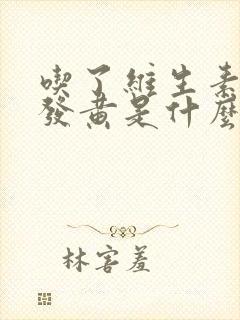 喫了維生素
發黄是什麼
林害羞